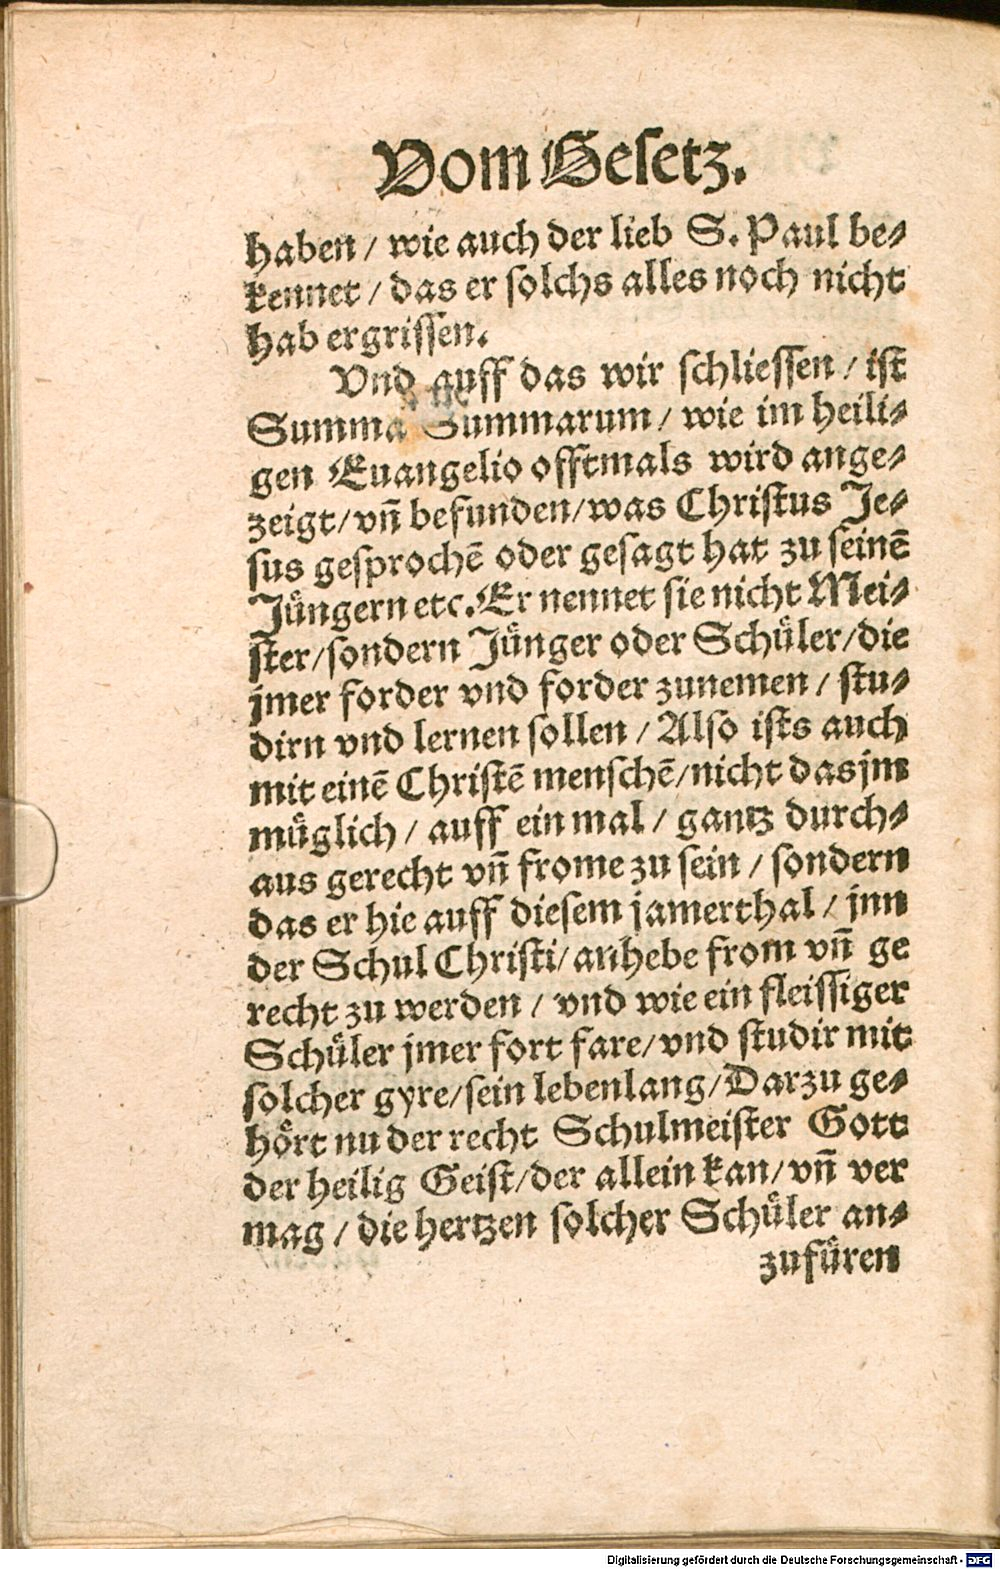 Vom Gesetz.
haben / wie auch der lieb S. Paul be⸗
kennet / das er solchs alles noch nicht
hab ergrissen.
Vnd auff das wir schliessen / ist
Summa Summarum / wie im heili⸗
gen Euangelio offtmals wird ange⸗
zeigt / vn̄ befunden / was Christus Je⸗
sus gesprochē oder gesagt hat zu seinē
Jüngern etc. Er nennet sie nicht Mei⸗
ster / sondern Jünger oder Schüler / die
jmer forder vnd forder zunemen / stu⸗
dirn vnd lernen sollen / Also ists auch
mit einē Christē menschē / nicht das jm
müglich / auff ein mal / gantz durch⸗
aus gerecht vn̄ frome zu sein / sondern
das er hie auff diesem jamerthal / jnn
der Schul Christi / anhebe from vn̄ ge
recht zu werden / vnd wie ein fleissiger
Schüler jmer fort fare / vnd studir mit
solcher gyre / sein lebenlang / Darzu ge⸗
hört nu der recht Schulmeister Gott
der heilig Geist / der allein kan / vn̄ ver
mag / die hertzen solcher Schüler an⸗
zufüren
Digitalisierung gefördert durch die Deutsche Forschungsgemeinschaft - DFG